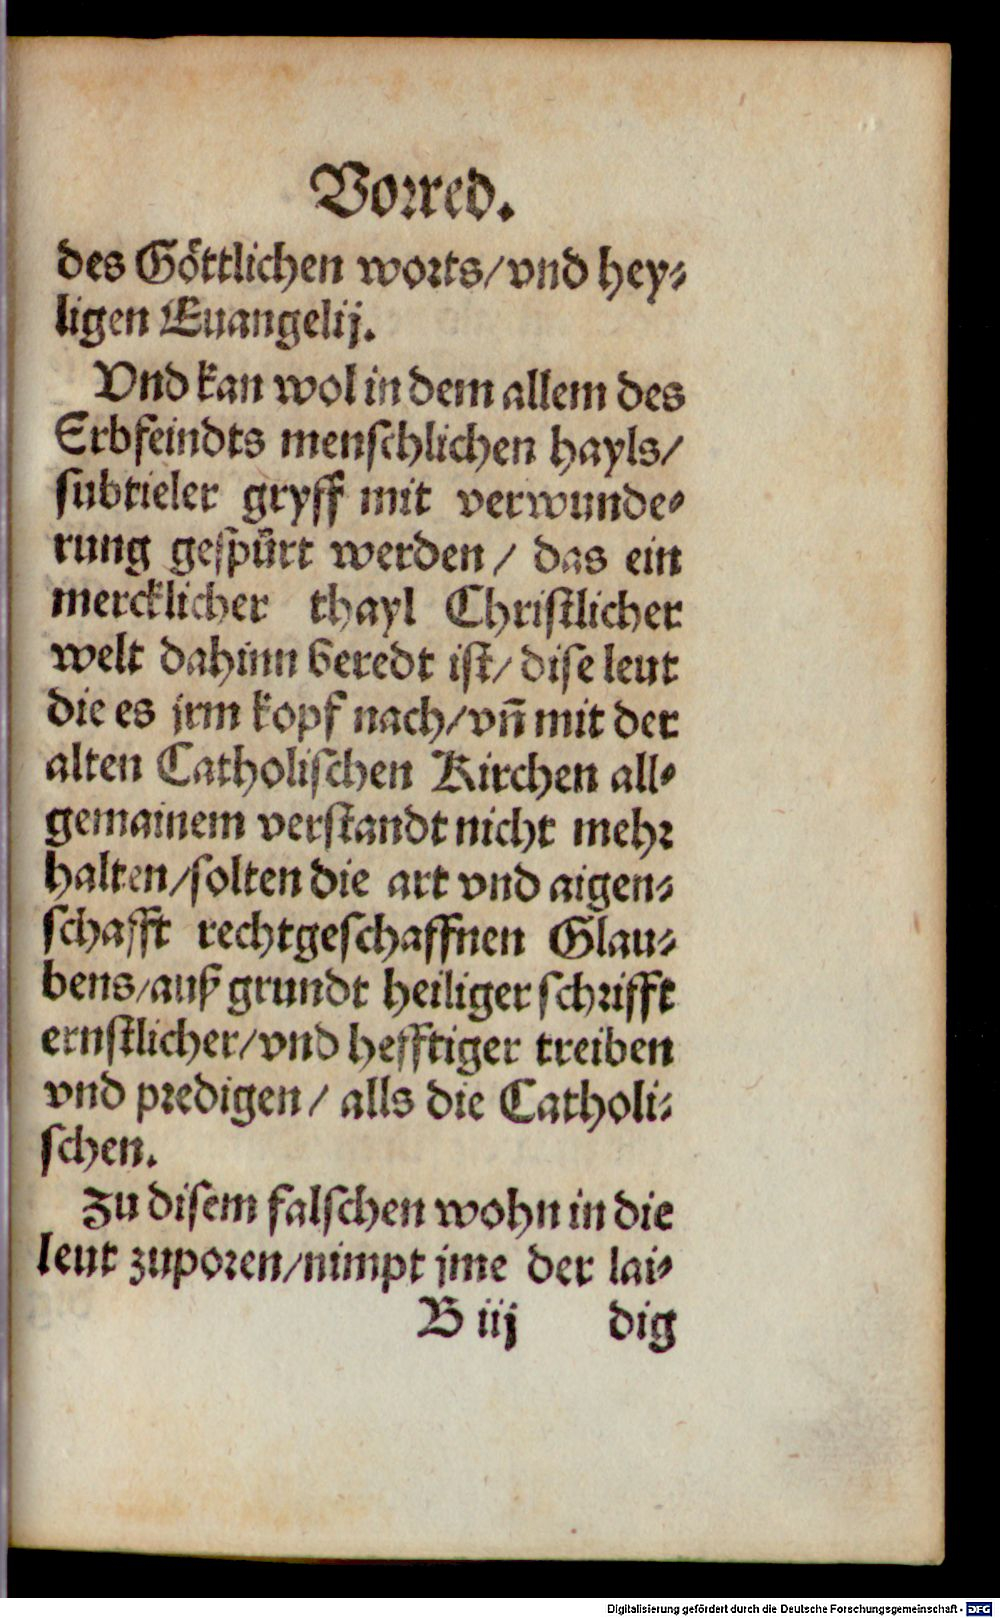 Vorred.
des Göttlichen worts/vnd hey⸗
ligen Euangelij.
Vnd kan wol in dem allem des
Erbfeindts menſchlichen hayls/
ſubtieler gryff mit verwunde⸗
rung geſpürt werden / das ein
mercklicher thayl Chriſtlicher
welt dahinn beredt iſt/ diſe leut
die es jrm kopf nach/vn̄ mit der
alten Catholiſchen Kirchen all⸗
gemainem verſtandt nicht mehr
halten/ſolten die art vnd aigen⸗
ſchafft rechtgeſchaffnen Glau⸗
bens/auß grundt heiliger ſchrifft
ernſtlicher/vnd hefftiger treiben
vnd predigen / alls die Catholi⸗
ſchen.
Zu diſem falſchen wohn in die
leut zuporen/nimpt jme der lai⸗
B iij dig
Digitalisierung gefördert durch die Deutsche Forschungsgemeinschaft - DFG